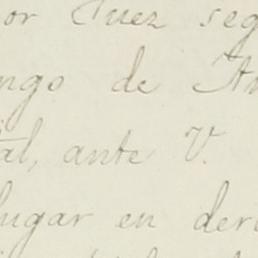 or Juez seg
ngo de
al, ante V.
lugar en der